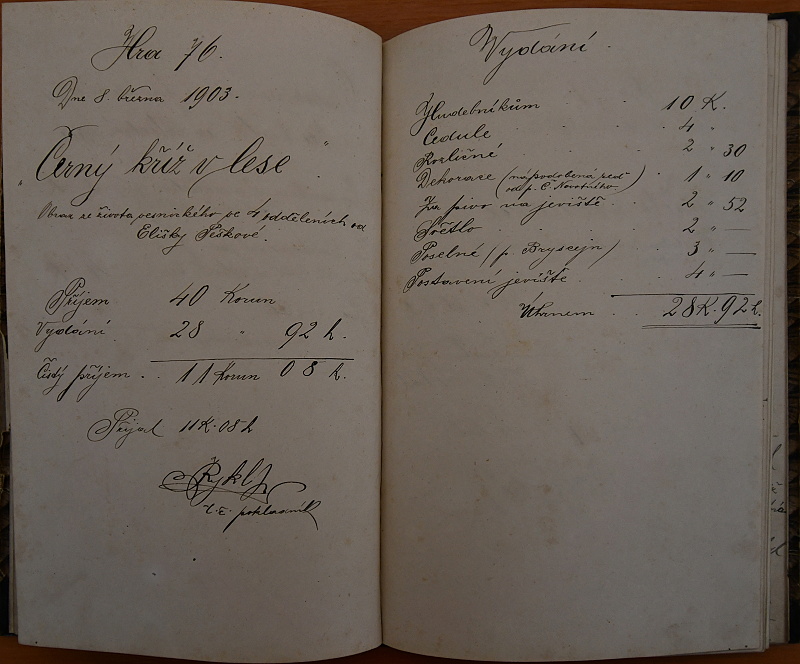 Hra 76.
Dne 8. března 1903.
„Černý kříž v lese“
Obraz ze života vesnického ve 4 odděleních od
Elišky Peškové.
Příjem 40 Korun
Vydání 28 „ 92 h.
Čistý příjem . . 11 Korun 08 h.
Přijal 11K. 08h
Rykl
t. č. pokladník
Vydání.
Hudebníkům . . . 10 K.
Cedule . . . 4 „
Rozličné . . . 2 „ 30
Dekorace (nápodobená zeď
od p. C. Novotného) . 1 „ 10
Za pivo na jeviště . . 2 „ 52
Světlo . . . . 2 „ —
Poselné (p. Bryscejn) . 3 „ —
Postavení jeviště . . . 4 „ —
Úhrnem . . 28K. 92h.